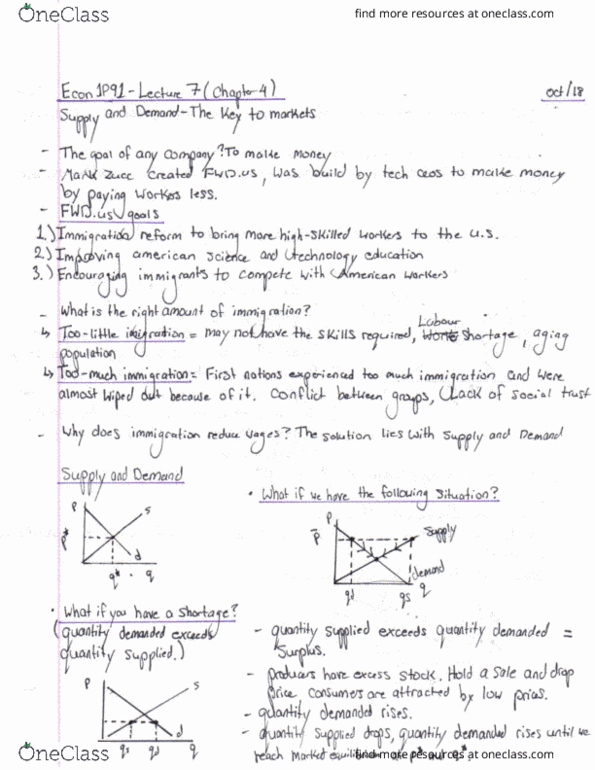 OneClass
find more resources at oneclass.com
Econ 1P91 - Lecture 7 (Chapter 4)
oct/18
Supply and Demand - The Key to markets
- The goal of any company? To make money
- Mark Zucc created FWD.us, was build by tech ceos to make money
by paying workers less.
- FWD.us goals
1.) Immigration reform to bring more high-skilled workers to the u.s.
2.) Improving american science and technology education
3.) Encouraging immigrants to compete with American workers
- What is the right amount of immigration?
↳ Too-little imigration = may not have the skills required, Labour shortage, aging
population
↳ Too-much immigration = First nations experienced too much immigration and were
almost wiped out because of it. Conflict between groups, Lack of social trust
- Why does immigration reduce wages? The solution lies with Supply and Demand
Supply and Demand
P
s
P*
d
q*
q
• What if we have the following situation?
P
P̄
Supply
demand
qd
qs
q
• What if you have a Shortage?
(quantity demanded exceeds
quantity supplied.)
P
s
d
qs
qd
q
- quantity supplied exceeds quantity demanded =
Surplus.
- producers have excess stock. Hold a sale and drop
price. Consumers are attracted by low prices.
- quantity demanded rises.
- quantity supplied drops, quantity demanded rises until we
reach market
OneClass
find more resources at oneclass.com